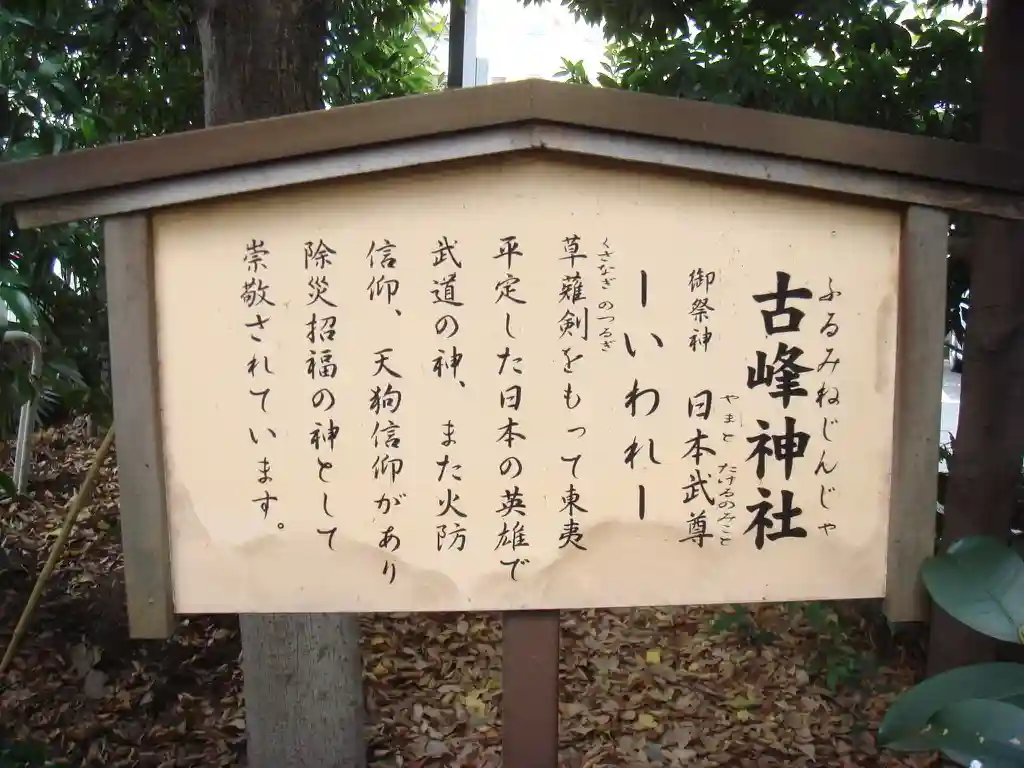 ふるみねじんじゃ
古峰神社
御祭神 日本武尊
やまと たけるのみこと
ーいわれー
くさなぎ のつるぎ
草薙剣をもって東夷
平定した日本の英雄で
武道の神、また火防
信仰、天狗信仰があり
除災招福の神として
崇敬されています。